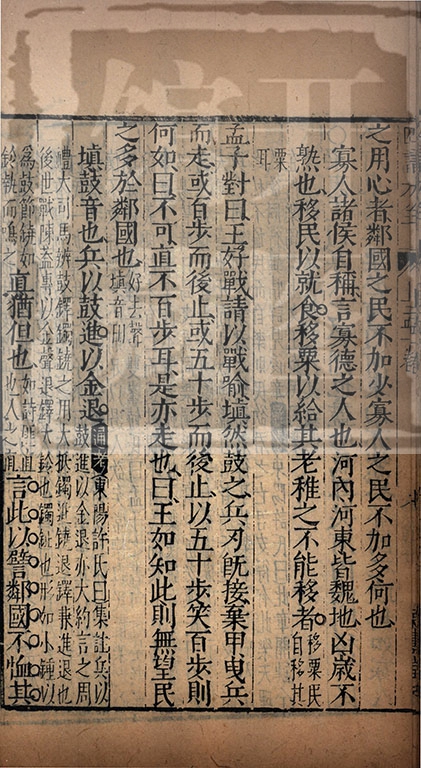 之用心者鄰國之民不加少寡人之民不加多何也
寡人諸侯自稱言寡德之人也河內河東皆魏地凶歲不
熟也移民以就食移粟以給其老稚之不能移者移粟民自移其
粟耳
孟子對曰王好戰請以戰喻塡然鼓之兵刃旣接棄甲曳兵
而走或百步而後止或五十步而後止以五十步笑百步則
何如曰不可直不百步耳是亦走也曰王如知此則無望民
之多於鄰國也好去聲塡音田
塡鼓音也兵以鼓進以金退通考東陽許氏曰集註兵以鼓進以金退亦大約言之周
禮大司馬辨鼓鐸鐲鐃之用大振鐲進鐃退鐸兼進退也
後世戰陳葢專以金聲退鐸大鈴也鐲鉦也形如小鍾以
爲鼓節鐃如鈴執而鳴之直猶但也如詩匪直也人之直言此以譬鄰國不恤其